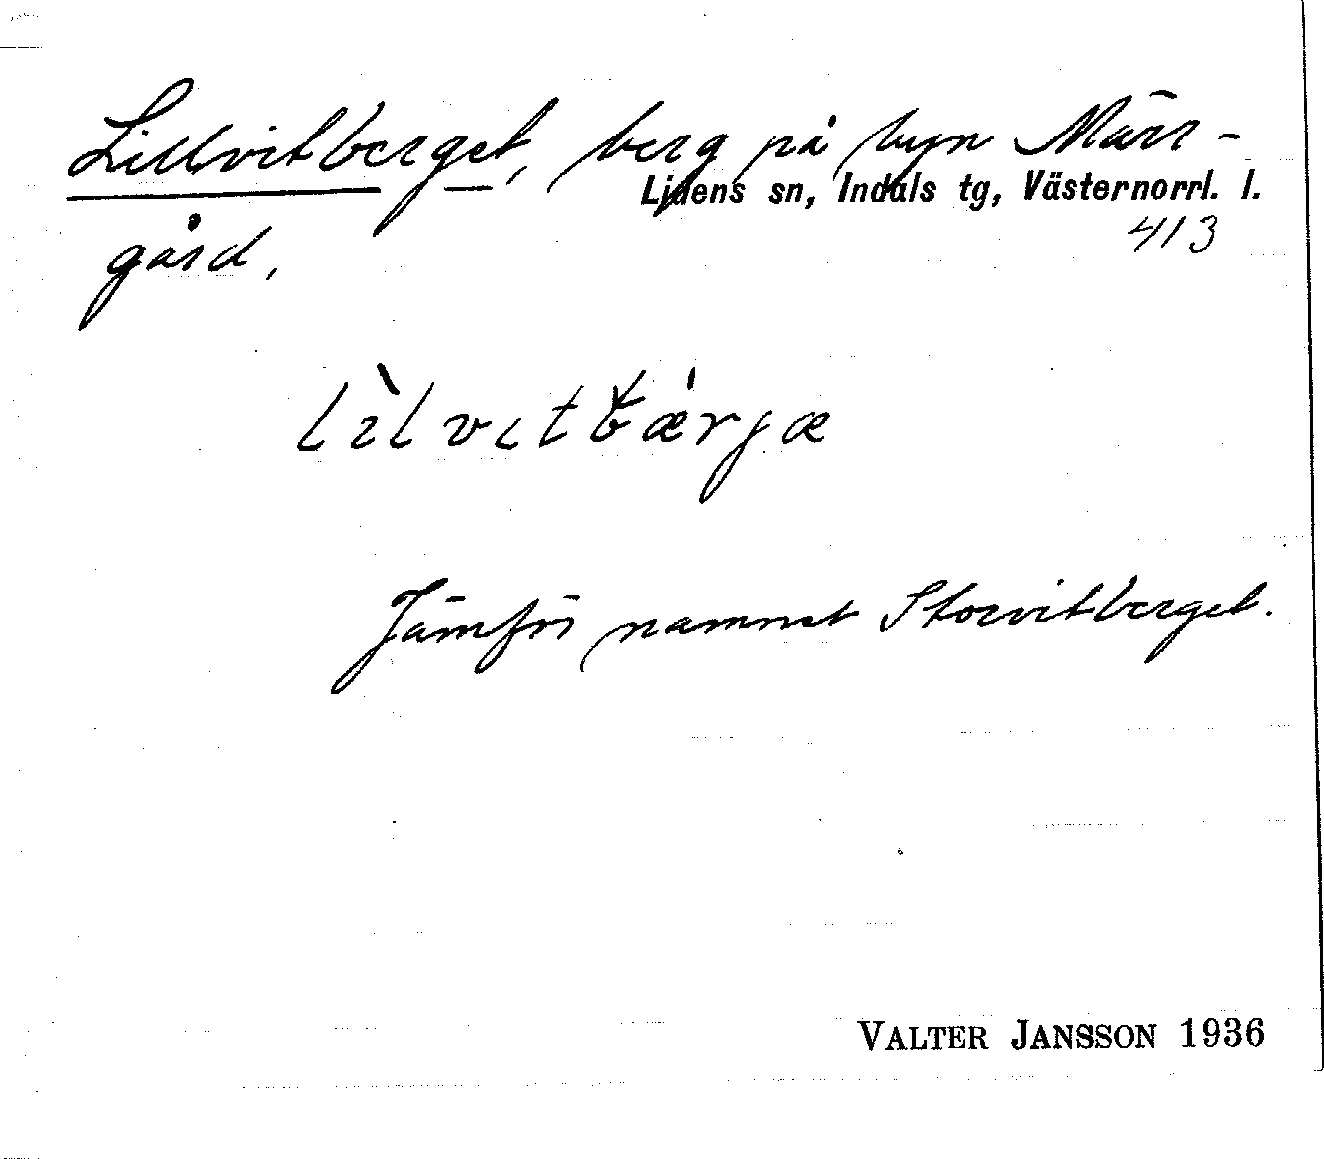 Lillvitberget, berg på byn Märr-
Lidens sn, Indals tg, Västernorrl. l.
gård,
413
lìlvitbǽrjæ
Jämför namnet Storvitberget.
VALTER JANSSON 1936